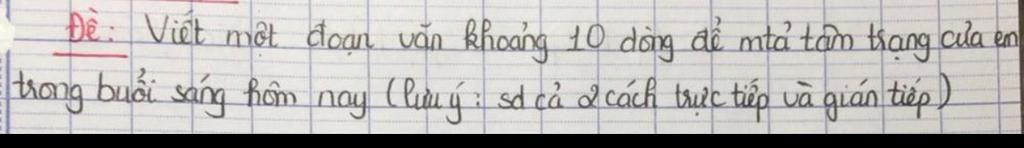 Đề: Viết một đoạn văn khoảng 10 dòng để mtả tâm trạng của em
trong buổi sáng hôm nay (lưu ý: sd cả 2 cách trực tiếp và gián tiếp)